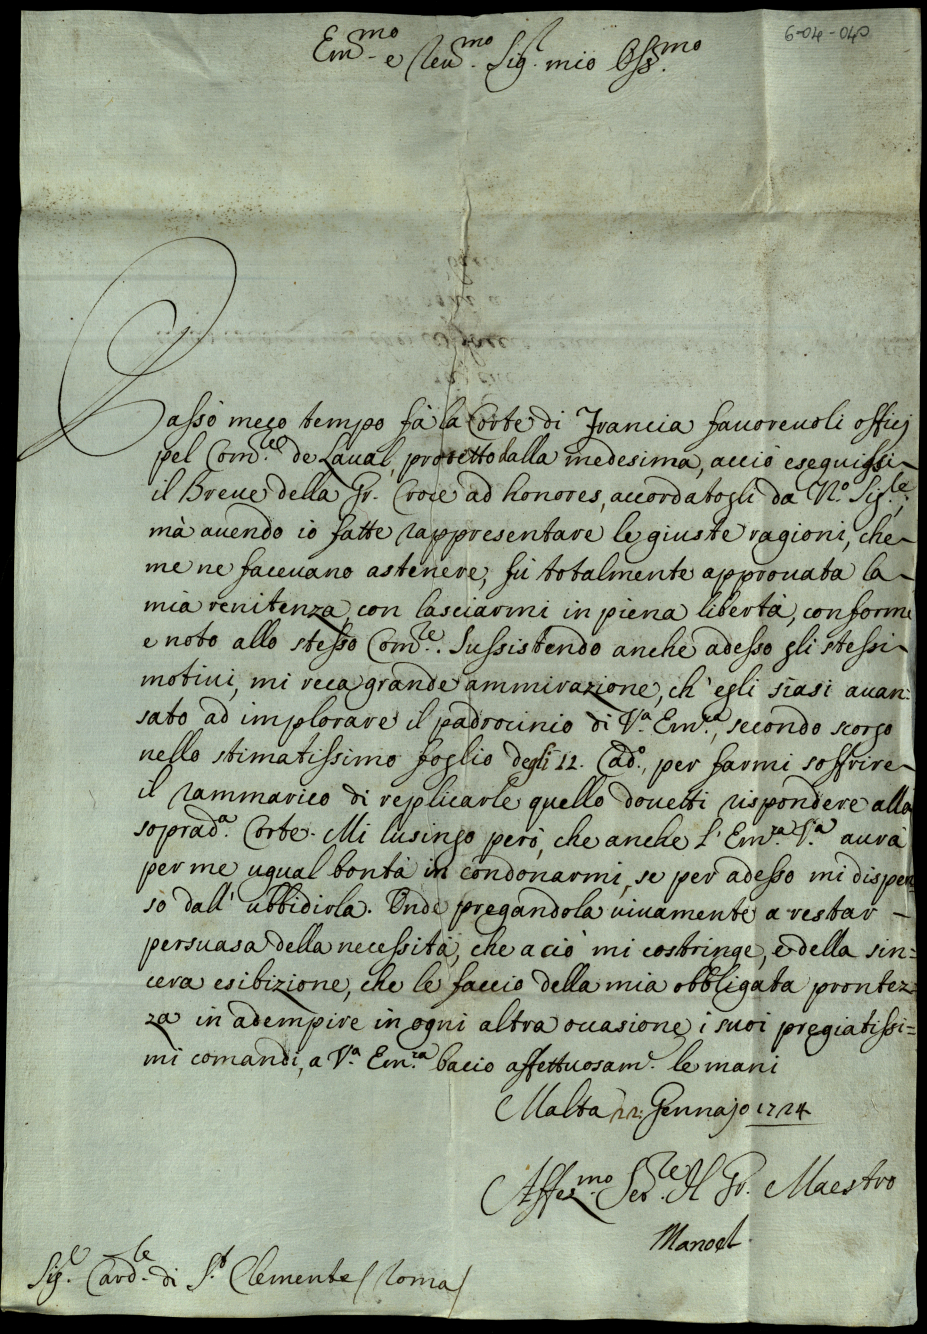 6-04-040
Em.mo e Reu.mo Sig.r mio Oss.mo
Passò mezo tempo fà la Corte di Francia fauoreuoli officij
pel Com.re de Laual, protetto dalla medesima, acciò eseguissi
il Breue della Gr. Croce ad honores, accordatogli da N.ro Sig.re;
mà auendo io fatte rappresentare le giuste ragioni, che
me ne faceuano astenere, fù totalmente approuata la
mia renitenza, con lasciarmi in piena libertà, conforme
e noto allo stesso Com.re. Sussistendo anche adesso gli stessi
motiui, mi reca grande ammirazione, ch'egli siasi auan=
sato ad implorare il padrocinio di V.a Em.za, secondo scorgo
nello stimatissimo foglio degli 12. Cad.o, per farmi soffrire
il rammarico di replicarle quello douetti rispondere alla
soprad.a Corte. Mi lusingo però, che anche l'Em.za V.a aurà
per me ugual bontà in condonarmi, se per adesso mi dispen=
sò dall'ubbidirla. Onde pregandola uiuamente a restar
persuasa della necessità, che a ciò mi costringe, e della sin=
cera esibizione, che le faccio della mia obbligata prontez=
za in adempire in ogni altra occasione i suoi pregiatissi=
mi comandi, a V.a Em.za bacio affettuosam.e le mani
Malta 22. Gennajo 1724
Affez.mo Ser.re Il Gr. Maestro
Manoel
Sig.e Card.le di S.t Clemente (Roma)